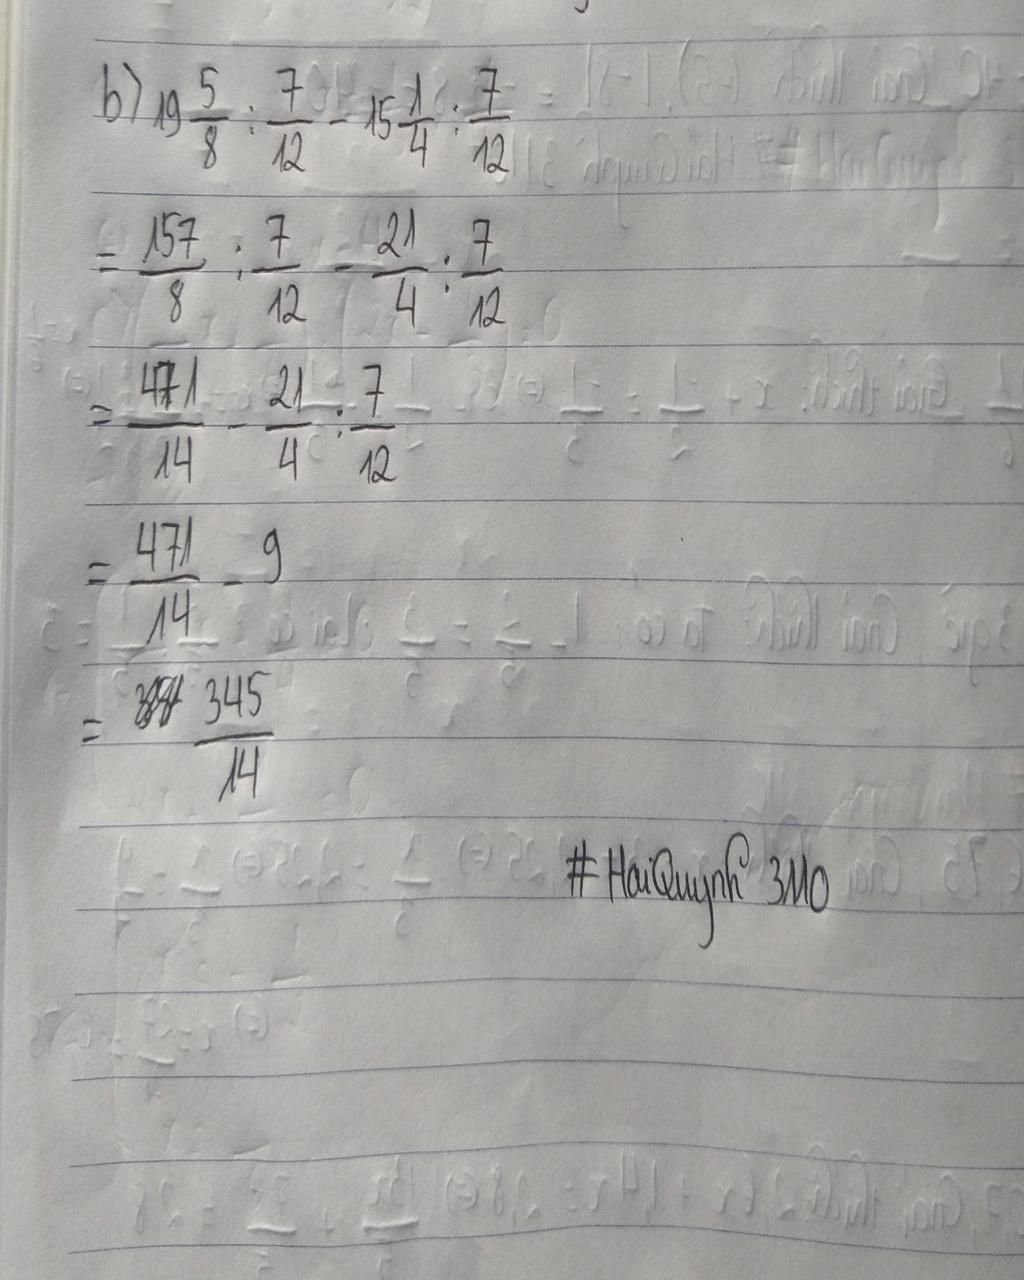 b) 19 5/8 : 7/12 - 15 1/4 : 7/12
= 157/8 : 7/12 - 21/4 : 7/12
= 471/14 - 21/4 : 7/12
= 471/14 - 9
= 345/14
# HaiQuynh 3M0